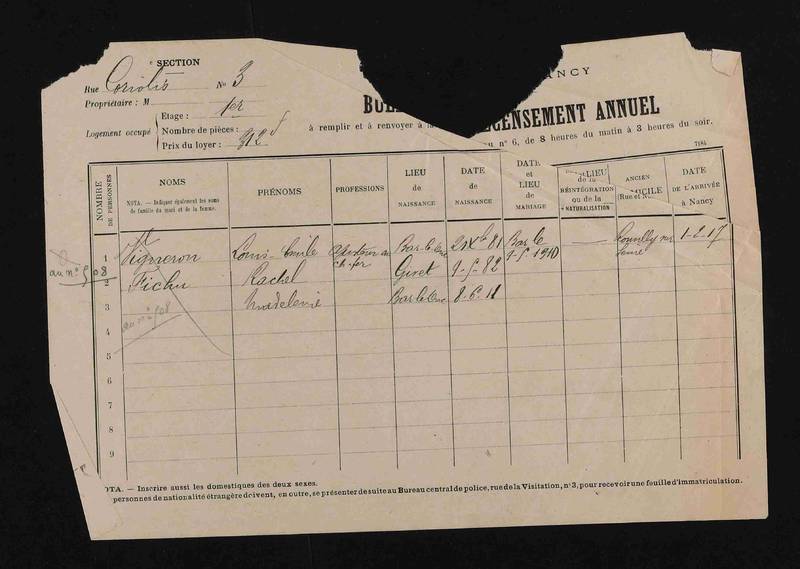 e SECTION
NANCY
Rue Coriolis No 3
Propriétaire : M
Etage : 1er
Logement occupé
Nombre de pièces :
Prix du loyer : 312
RECENSEMENT ANNUEL
à remplir et à renvoyer à la
au n° 6, de 8 heures du matin à 3 heures du soir.
7184
NOMBRE DE PERSONNES
NOMS
NOTA. — Indiquer également les noms de famille du mari et de la femme.
PRÉNOMS
PROFESSIONS
LIEU de NAISSANCE
DATE de NAISSANCE
DATE et LIEU de MARIAGE
LIEU de la RÉINTÉGRATION ou de la NATURALISATION
ANCIEN DOMICILE (Rue et No
DATE DE L'ARRIVÉE à Nancy
1 Vigneron Louis Emile ch. fer Bar-le-Duc 2 Xbre 81 Bar le 9-5-1910 — 1-2-17
au n° 508
2 Fichu Rachel Givet 9-5-82
3 Madeleine Bar le Duc 8-6-11
au n° 508
4
5
6
7
8
9
NOTA. — Inscrire aussi les domestiques des deux sexes.
personnes de nationalité étrangère doivent, en outre, se présenter de suite au Bureau central de police, rue de la Visitation, n° 3, pour recevoir une feuille d'immatriculation.